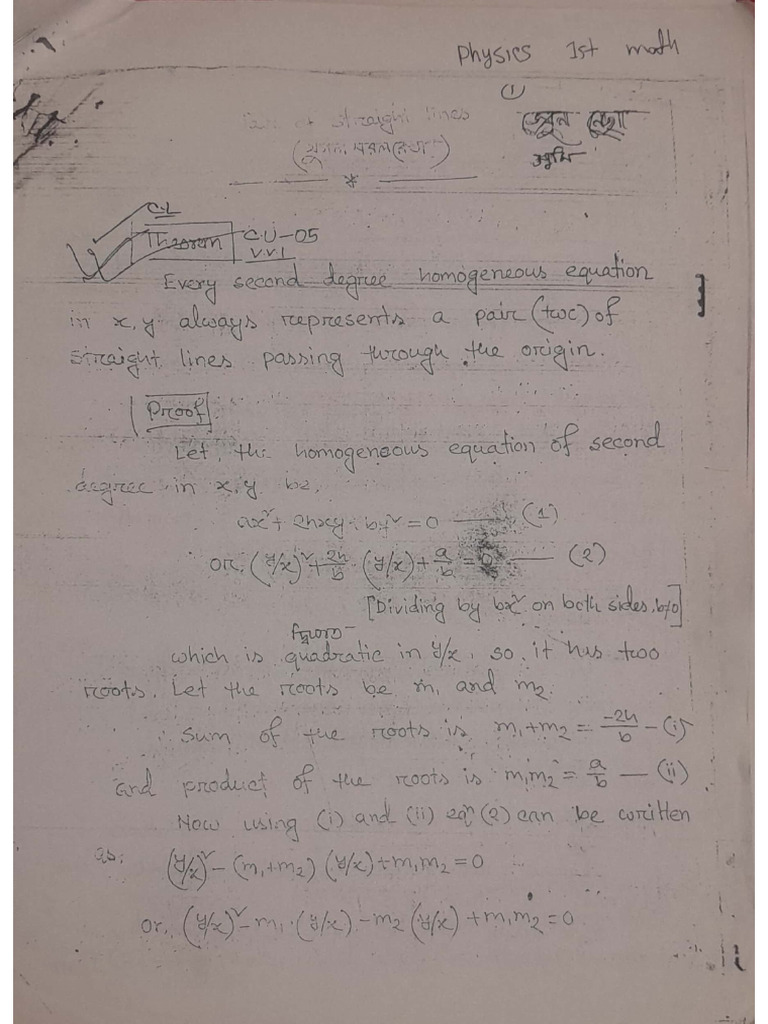 Physics 1st math
①
straight lines
(যুগল সরলরেখা)
*
C.U
Theorem C.U-05
V.V.I
Every second degree homogeneous equation
in x, y always represents a pair (two) of
straight lines passing through the origin.
Proof
Let, the homogeneous equation of second
degree in x, y be,
ax²+2hxy+by²=0 —— (1)
or, (y/x)²+2h/b·(y/x)+a/b=0 —— (2)
[Dividing by bx² on both sides, b≠0]
which is quadratic in y/x, so it has two
roots. Let the roots be m₁ and m₂.
Sum of the roots is m₁+m₂=-2h/b —(i)
and product of the roots is m₁m₂=a/b —(ii)
Now using (i) and (ii) eqn (2) can be written
as,
(y/x)²-(m₁+m₂)(y/x)+m₁m₂=0
or, (y/x)²-m₁·(y/x)-m₂(y/x)+m₁m₂=0